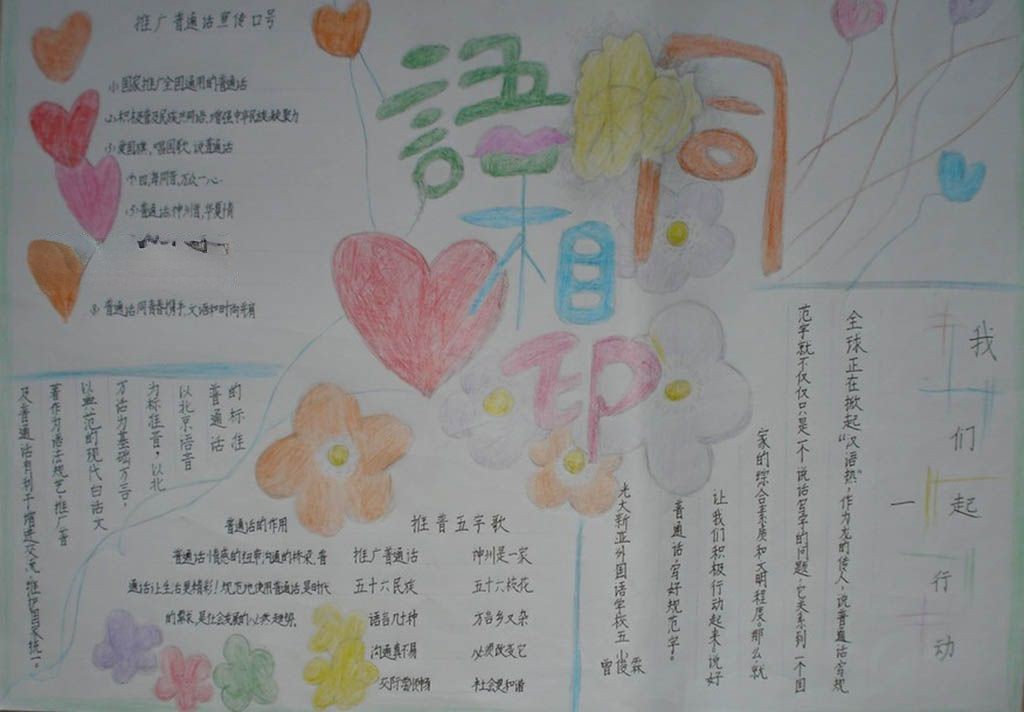 推广普通话宣传口号
(1)国家推广全国通用的普通话
(2)积极普及民族共同语,增强中华民族凝聚力
(3)爱国旗,唱国歌,说普通话
(四)海同音,万众一心.
(5)普通话,神州音,华夏情
⑧ 普通话同青春携手,文语和时尚并肩
語同
相
印
的标准
普通话
以北京语音
为标准音,以北
方话为基础方言,
以典范的现代白话文
著作为语法规范,推广普
及普通话有利于增进交流,维护国家统一。
普通话的作用
普通话:情感的纽带,沟通的桥梁,普
通话让生活更精彩!规范地使用普通话,是时代
的需求,是社会发展的必然趋势。
推普五字歌
推广普通话 神州是一家
五十六民族 五十六枝花
语言几十种 方言乡又杂
沟通真不易 必须改变它
交际需顺畅 社会更和谐
我们一起行动
全球正在掀起“汉语热”,作为龙的传人,说普通话,写规
范字就不仅仅只是一个说话写字的问题,它关系到一个国
家的综合素质和文明程度。那么,就
让我们积极行动起来,说好
普通话,写好规范字。
光大新亚外国语学校五
曾俊霖